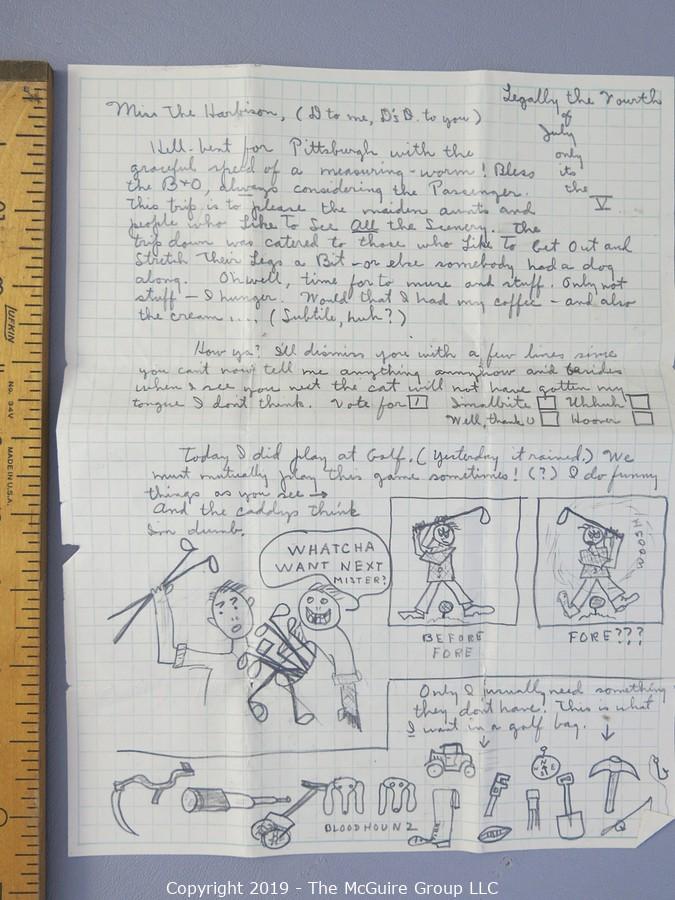 Legally the Vourth
of
July
only
its
the
V
Miss The Harbison, (D to me, D's D. to you)
Hell-bent for Pittsburgh with the
graceful speed of a measuring-worm! Bless
the B+O, always considering the Passenger.
This trip is to please the maiden aunts and
people who Like To See All the Scenery. The
trip down was catered to those who Like To Get Out and
Stretch Their Legs a Bit - or else somebody had a dog
along. Oh well, time for to muse and stuff. Only not
stuff - I hunger. Would that I had my coffee - and also
the cream.... (Subtile, huh?)
How ya? I'll dismiss you with a few lines since
you can't now tell me anything annyhow and besides
when I see you next the cat will not have gotten my
tongue I don't think. Vote for 1 Imallrite Uhhuh
Well, thank U Hoover
Today I did play at Golf. (Yesterday it rained.) We
must mutually play this game sometimes! (?) I do funny
things as you see →
And the caddys think
I'm dumb.
WHATCHA
WANT NEXT
MISTER?
? ?
WHOOSH
BEFORE
FORE
FORE???
Only I usually need something
they dont have. This is what
I want in a golf bag.
BLOODHOUNZ
N
W E
S
LUFKIN
No. 34V
MADE IN U.S.A.
Copyright 2019 - The McGuire Group LLC